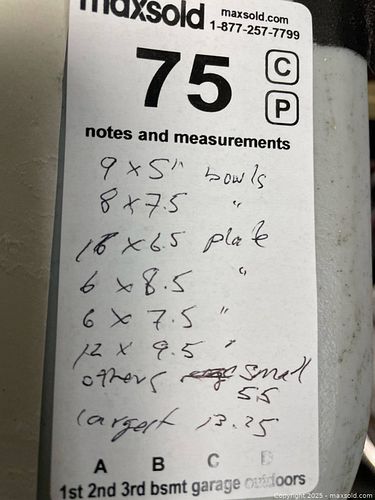 maxsold maxsold.com
1-877-257-7799
75 C
P
notes and measurements
9 x 5" bowls
8 x 7.5 "
18 x 6.5 plate
6 x 8.5 "
6 x 7.5 "
12 x 9.5 "
others small
5.5
largest 13.25
A B C D
1st 2nd 3rd bsmt garage outdoors
Copyright 2025 - maxsold.com